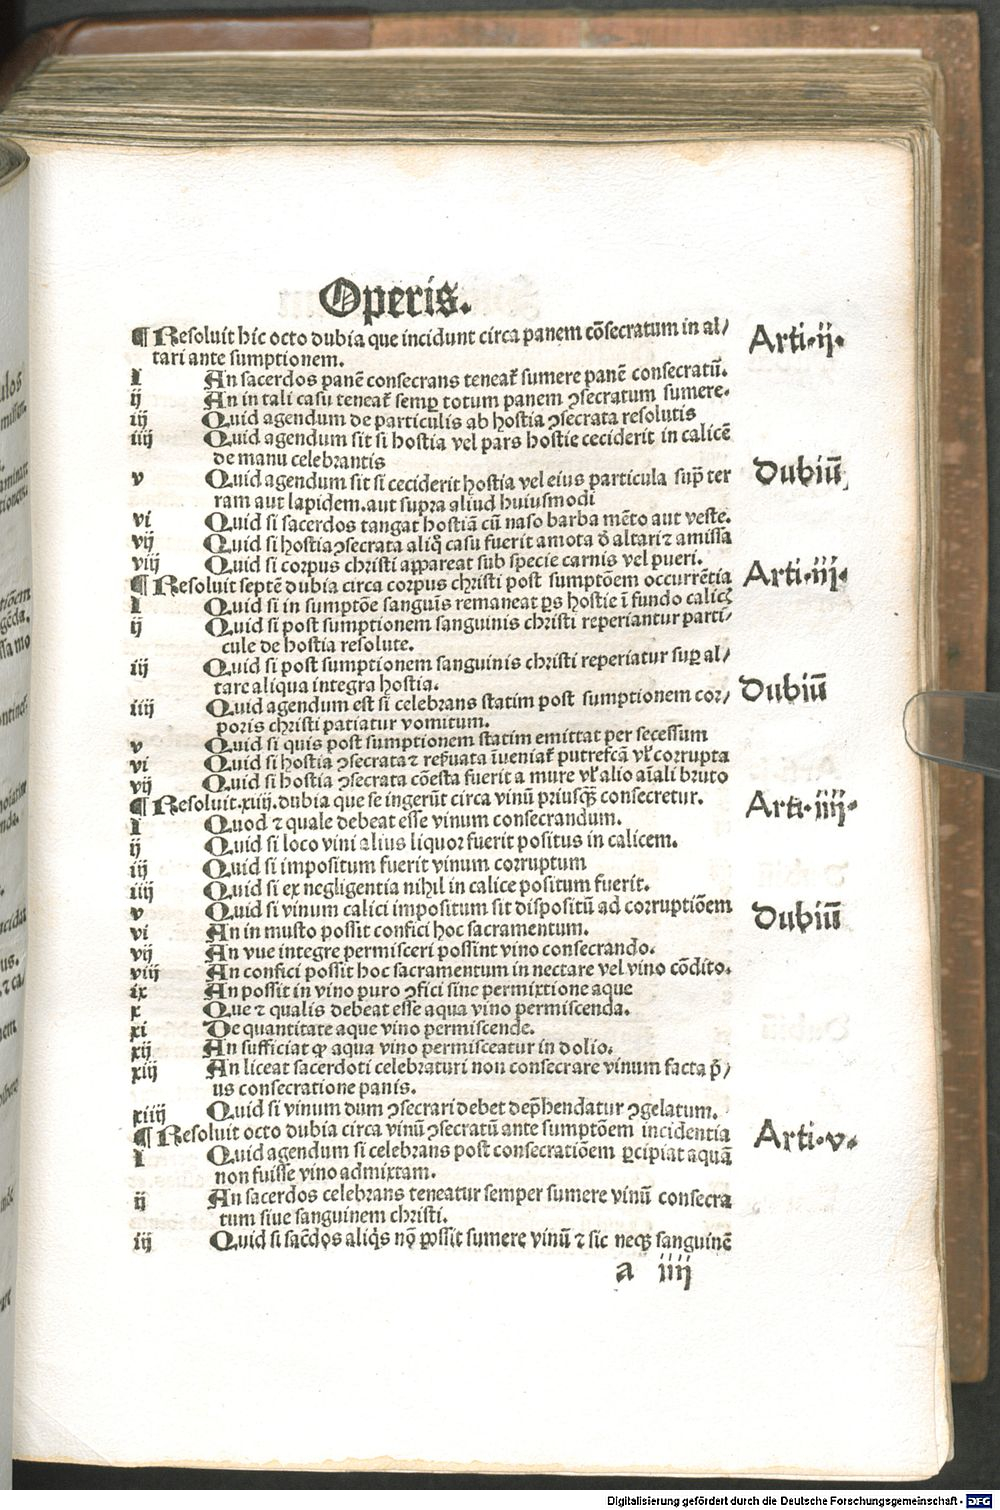 Operis.
¶ Resoluit hic octo dubia que incidunt circa panem cōsecratum in al/
tari ante sumptionem.
Arti·ij·
I An sacerdos panē consecrans teneat᷑ sumere panē consecratū.
ij An in tali casu teneat᷑ semꝑ totum panem ꝯsecratum sumere.
iij Quid agendum de particulis ab hostia ꝯsecrata resolutis
iiij Quid agendum sit si hostia vel pars hostie ceciderit in calicē
de manu celebrantis
Dubiū
v Quid agendum sit si ceciderit hostia vel eius particula suꝑ ter
ram aut lapidem.aut supra aliud huiusmodi
vi Quid si sacerdos tangat hostiā cū naso barba mēto aut veste.
vij Quid si hostia ꝯsecrata aliq̊ casu fuerit amota d̄ altari ⁊ amissa
viij Quid si corpus christi appareat sub specie carnis vel pueri.
¶ Resoluit septē dubia circa corpus christi post sumptōem occurrētia
Arti·iij·
I Quid si in sumptōe sanguis remaneat ps hostie ī fundo calicꝭ
ij Quid si post sumptionem sanguinis christi reperiantur parti/
cule de hostia resolute.
iij Quid si post sumptionem sanguinis christi reperiatur suꝑ al/
tare aliqua integra hostia.
Dubiū
iiij Quid agendum est si celebrans statim post sumptionem cor/
poris christi patiatur vomitum.
v Quid si quis post sumptionem statim emittat per secessum
vi Quid si hostia ꝯsecrata ⁊ reẜuata īueniat᷑ putrefcā vl̓ corrupta
vij Quid si hostia ꝯsecrata cōesta fuerit a mure vl̓ alio aīali bruto
¶ Resoluit.xiiij.dubia que se ingerūt circa vinū priusqꝫ consecretur.
Arti·iiij·
I Quod ⁊ quale debeat esse vinum consecrandum.
ij Quid si loco vini alius liquor fuerit positus in calicem.
iij Quid si impositum fuerit vinum corruptum
iiij Quid si ex negligentia nihil in calice positum fuerit.
v Quid si vinum calici impositum sit dispositū ad corruptiōem
Dubiū
vi An in musto possit confici hoc sacramentum.
vij An vue integre permisceri possint vino consecrando.
viij An confici possit hoc sacramentum in nectare vel vino cōdito.
ix An possit in vino puro ꝯfici sine permixtione aque
x Que ⁊ qualis debeat esse aqua vino permiscenda.
xi De quantitate aque vino permiscende.
xij An sufficiat ꝙ aqua vino permisceatur in dolio.
xiij An liceat sacerdoti celebraturi non consecrare vinum facta p̄/
us consecratione panis.
xiiij Quid si vinum dum ꝯsecrari debet dep̄hendatur ꝯgelatum.
¶ Resoluit octo dubia circa vinū ꝯsecratū ante sumptōem incidentia
Arti·v·
I Quid agendum si celebrans post consecratiōem ꝑcipiat aquā
non fuisse vino admixtam.
ij An sacerdos celebrans teneatur semper sumere vinū consecra
tum siue sanguinem christi.
iij Quid si sac̄dos aliq̇s nō possit sumere vinū ⁊ sic neqꝫ sanguinē
a iiij
Digitalisierung gefördert durch die Deutsche Forschungsgemeinschaft - DFG